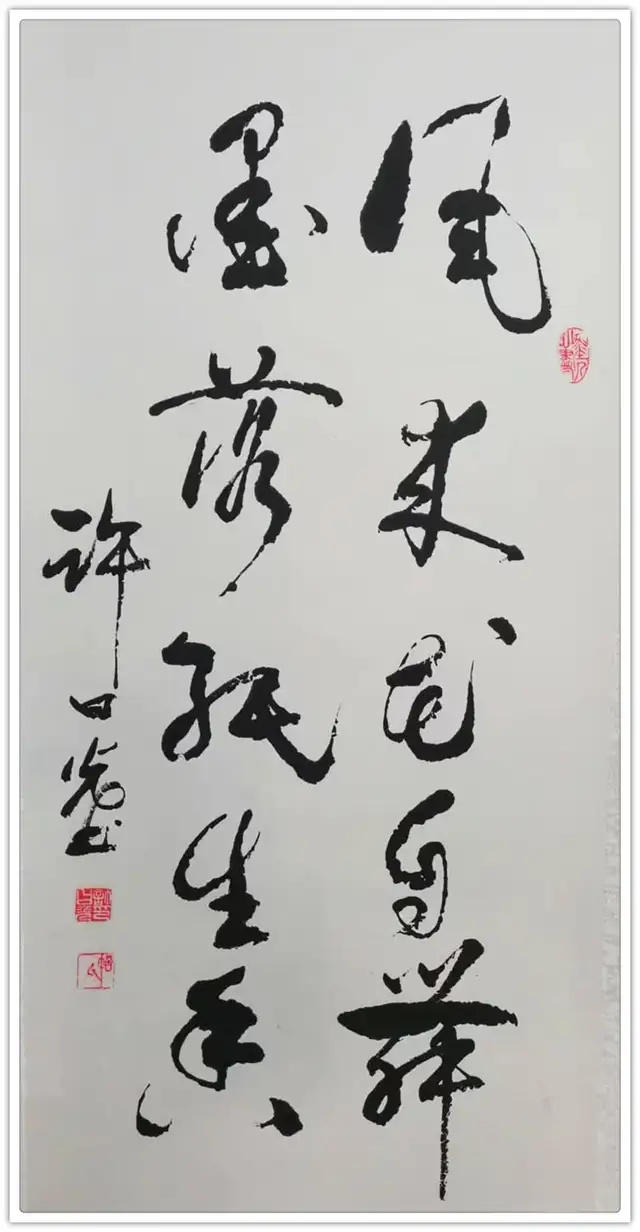 風来花自舞
墨落紙生香
許